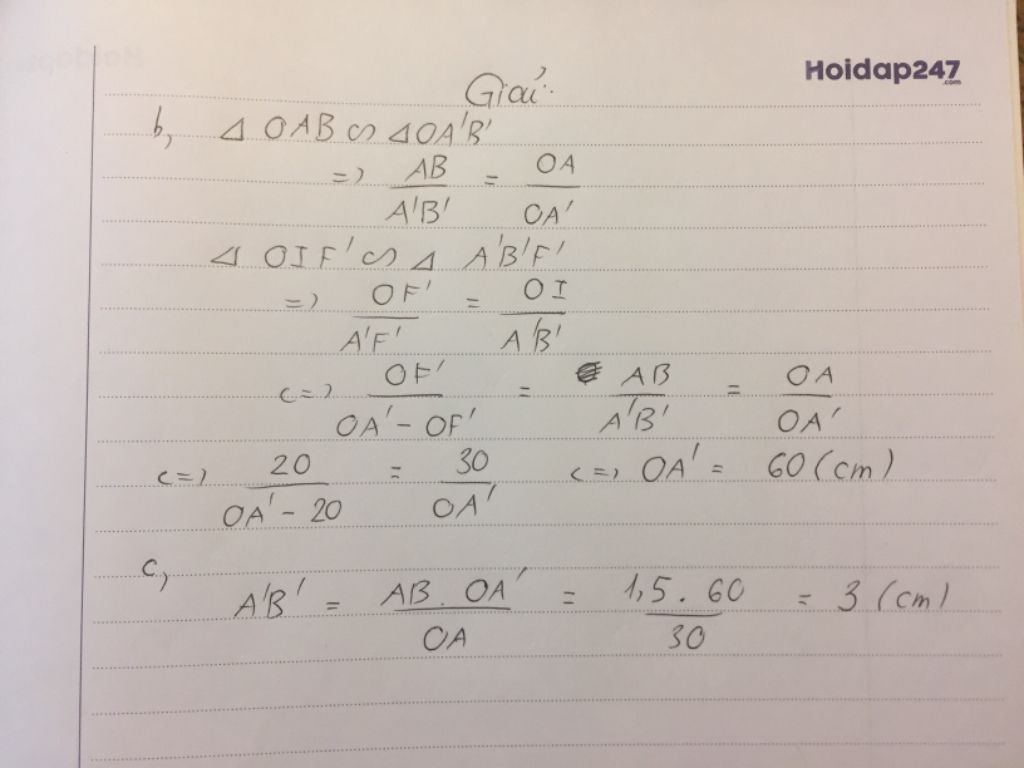 Hoidap247
.com
Giải:
b, Δ OAB ∽ ΔOA'B'
=> AB/A'B' = OA/OA'
Δ OIF' ∽ Δ A'B'F'
=> OF'/A'F' = OI/A'B'
<=> OF'/OA' - OF' = AB/A'B' = OA/OA'
<=> 20/OA' - 20 = 30/OA' <=> OA' = 60 (cm)
c, A'B' = AB . OA'/OA = 1,5 . 60/30 = 3 (cm)